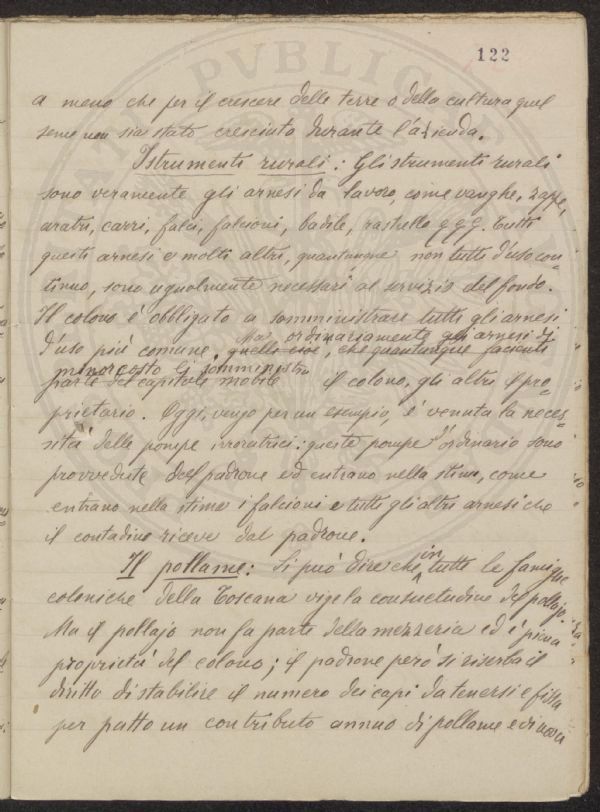 122
a meno che per il crescere delle terre o della cultura quel
seme non sia stato cresciuto durante l'azienda.
Istrumenti rurali: Gli strumenti rurali
sono veramente gli arnesi da lavoro, come vanghe, zappe,
aratri, carri, falci, falcioni, badile, rastrello q q q. Tutti
questi arnesi e molti altri, quantunque non tutti d'uso con-
tinuo, sono ugualmente necessari al servizio del fondo.
Il colono è obbligato a somministrare tutti gli arnesi
d'uso più comune, quelli cioè, che quantunque facienti
Ma ordinariamente gli arnesi di
minor costo li somministra
parte dei capitali mobili il colono, gli altri il pro-
prietario. Oggi, vengo per un esempio, è venuta la neces-
sità delle pompe irroratrici: queste pompe d'ordinario sono
provvedute dal padrone ed entrano nella stima, come
entrano nella stima i falcioni e tutti gli altri arnesi che
il contadino riceve dal padrone.
Il pollame: Si può dire che in tutte le famiglie
coloniche della Toscana vige la consuetudine del pollajo.
Ma il pollajo non fa parte della mezzeria ed è piena
proprietà del colono; il padrone però si riserba il
diritto di stabilire il numero dei capi da tenersi e fissa
per patto un contributo annuo di pollame e di uova